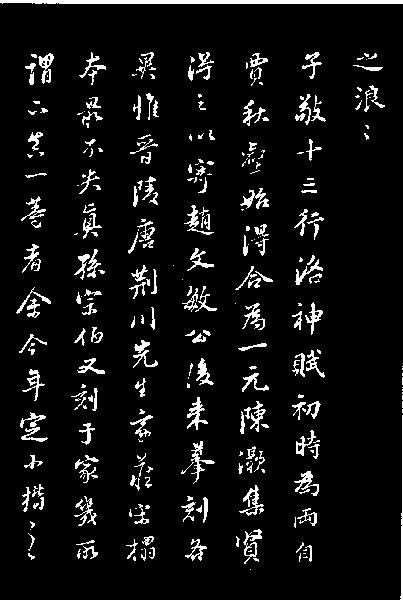 之浪〻
子敬十三行洛神賦初時為兩自
賈秋壑始淂合為一元陳灝集賢
淂之以寄趙文敏公後来摹刻各
異惟晉陵唐荊川先生家藏宋搨
本最不失真孫宗伯又刻于家幾所
謂下真一等者余今年定小楷之